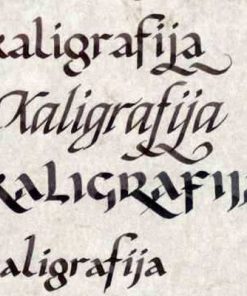 kaligrafija
Kaligrafija
KALIGRAFIJA
kaligrafija